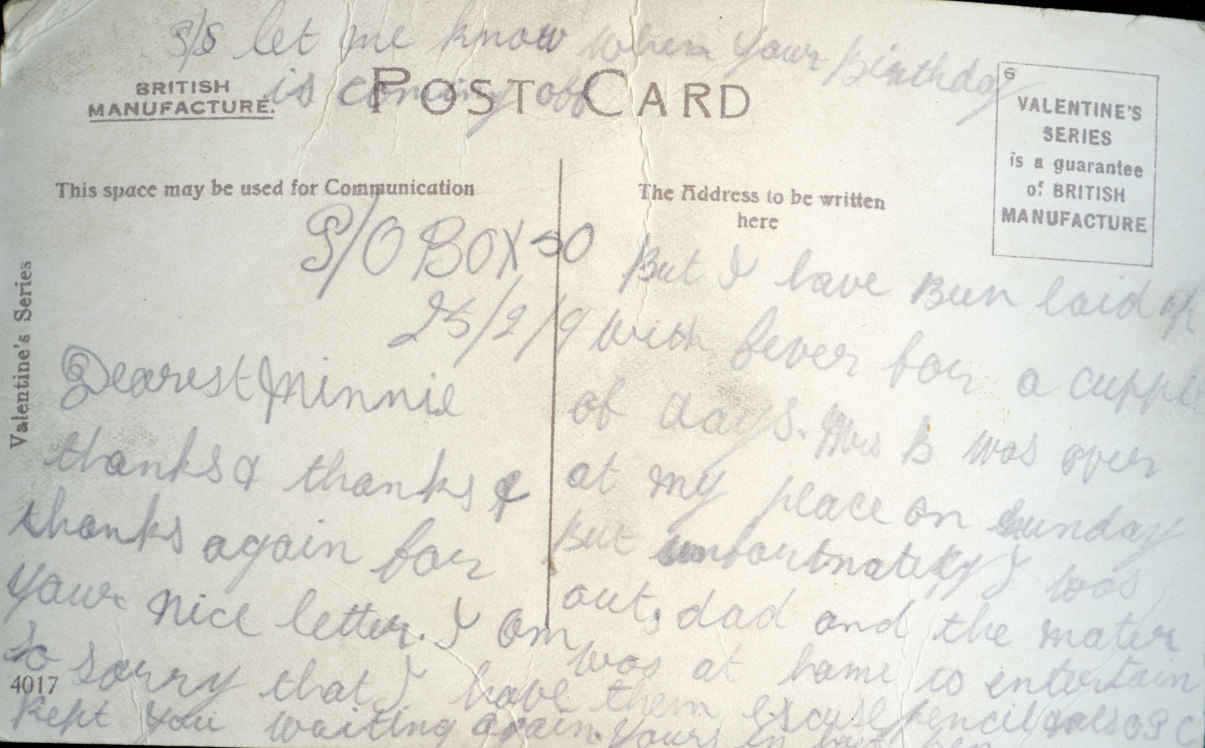 P/S let me know when your Birthday
is coming off
BRITISH
MANUFACTURE.
POST CARD
6
VALENTINE'S
SERIES
is a guarantee
of BRITISH
MANUFACTURE
This space may be used for Communication
The Address to be written
here
Valentine's Series
P/O BOX 50
25/2/9
Dearest Minnie
thanks & thanks &
thanks again for
your nice letter. I am
so sorry that I have
kept you waiting again.
4017
But I have Bun laid up
with fever for a cupple
of days. Mrs B was over
at my place on Sunday
but unfortnately I was
out, dad and the mater
was at home to entertain
them excuse pencil & also P C
Yours in